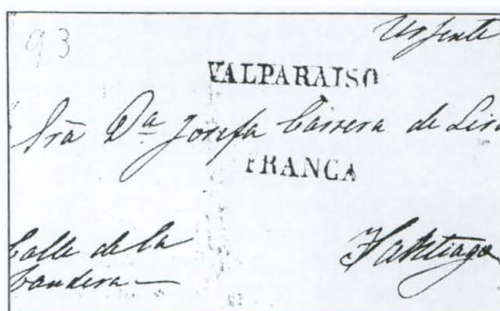 93
Urgente
VALPARAISO
Sra Da Josefa Carrera de Lira
FRANCA
Calle de la
Bandera —
Santiago